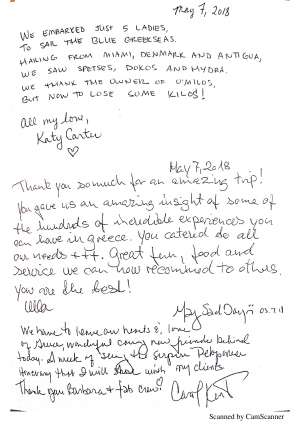 May 7, 2018
WE EMBARKED JUST 5 LADIES,
TO SAIL THE BLUE GREEK SEAS.
HAILING FROM MIAMI, DENMARK AND ANTIGUA,
WE SAW SPETSES, DOKOS AND HYDRA.
WE THANK THE OWNER OF O'MILOS,
BUT NOW TO LOSE SOME KILOS!
All my love,
Katy Carter
May 7, 2018
Thank you so much for an amazing trip!
You gave us an amazing insight of some of
the hundreds of incredible experiences you
can have in greece. You catered to all
our needs +++. Great fun, food and
service we can now recommend to others.
You are the best!
Ulla
My Sad Day
We have to leave our hearts & love
of Greece, wonderful caring new friends behind
today. A week of seeing the
Knowing that I will share with my clients
Thank you Barbara + fab crew!
Carol Kent
Scanned by CamScanner